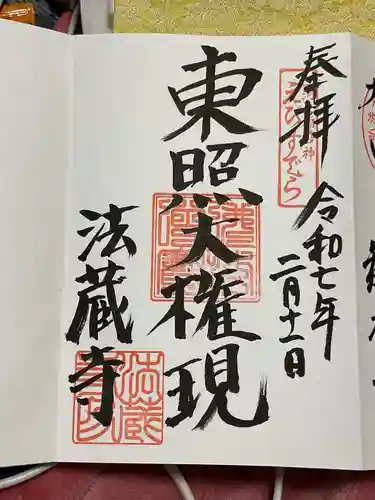 奉拝
令和七年
二月十一日
東照大権現
法蔵寺